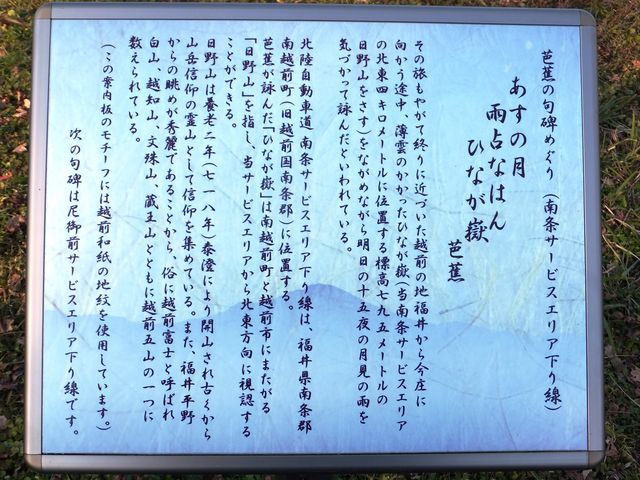 芭蕉の句碑めぐり（南条サービスエリア下り線）
あすの月
雨占なはん
ひなが嶽
芭蕉
その旅もやがて終りに近づいた越前の地福井から今庄に
向かう途中、薄雲のかかったひなが嶽（当南条サービスエリア
の北東四キロメートルに位置する標高七九五メートルの
日野山をさす）をながめながら明日の十五夜の月見の雨を
気づかって詠んだといわれている。
北陸自動車道 南条サービスエリア下り線は、福井県南条郡
南越前町（旧越前国南条郡）に位置する。
芭蕉が詠んだ「ひなが嶽」は南越前町と越前市にまたがる
「日野山」を指し、当サービスエリアから北東方向に視認する
ことができる。
日野山は養老二年（七一八年）泰澄により開山され古くから
山岳信仰の霊山として信仰を集めている。また、福井平野
からの眺めが秀麗であることから、俗に越前富士と呼ばれ
白山、越知山、文殊山、蔵王山とともに越前五山の一つに
数えられている。
（この案内板のモチーフには越前和紙の地紋を使用しています。）
次の句碑は尼御前サービスエリア下り線です。